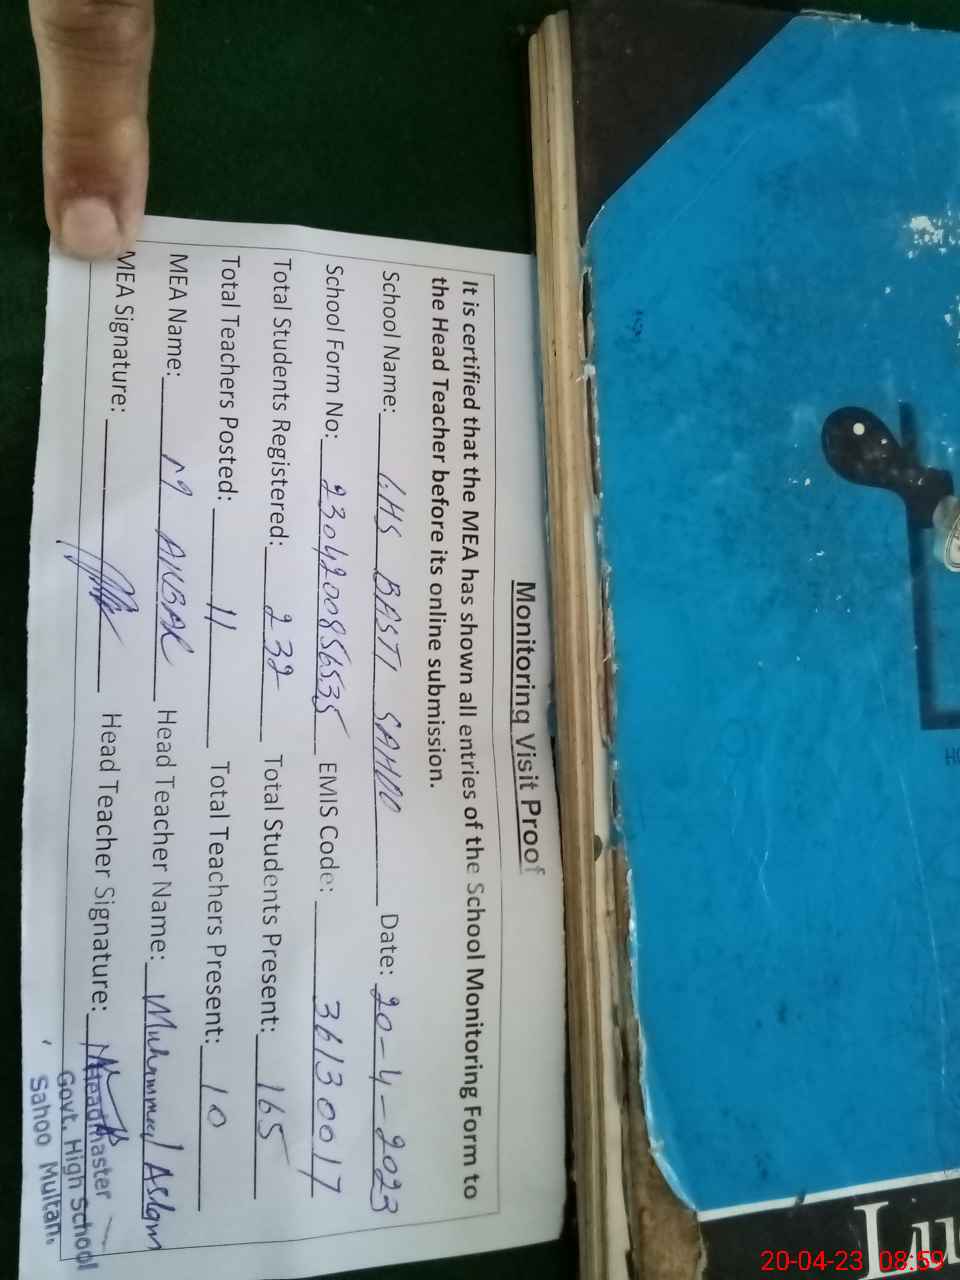 Monitoring Visit Proof
It is certified that the MEA has shown all entries of the School Monitoring Form to
the Head Teacher before its online submission.
School Name: GHS BASTI SAHOO Date: 20-4-2023
School Form No: 2304200856535 EMIS Code: 36130017
Total Students Registered: 232 Total Students Present: 165
Total Teachers Posted: 11 Total Teachers Present: 10
MEA Name: M AKBAR Head Teacher Name: Muhammad Aslam
MEA Signature: Head Teacher Signature:
HeadMaster
Govt. High School
Sahoo Multan.
Lu
20-04-23 08:59